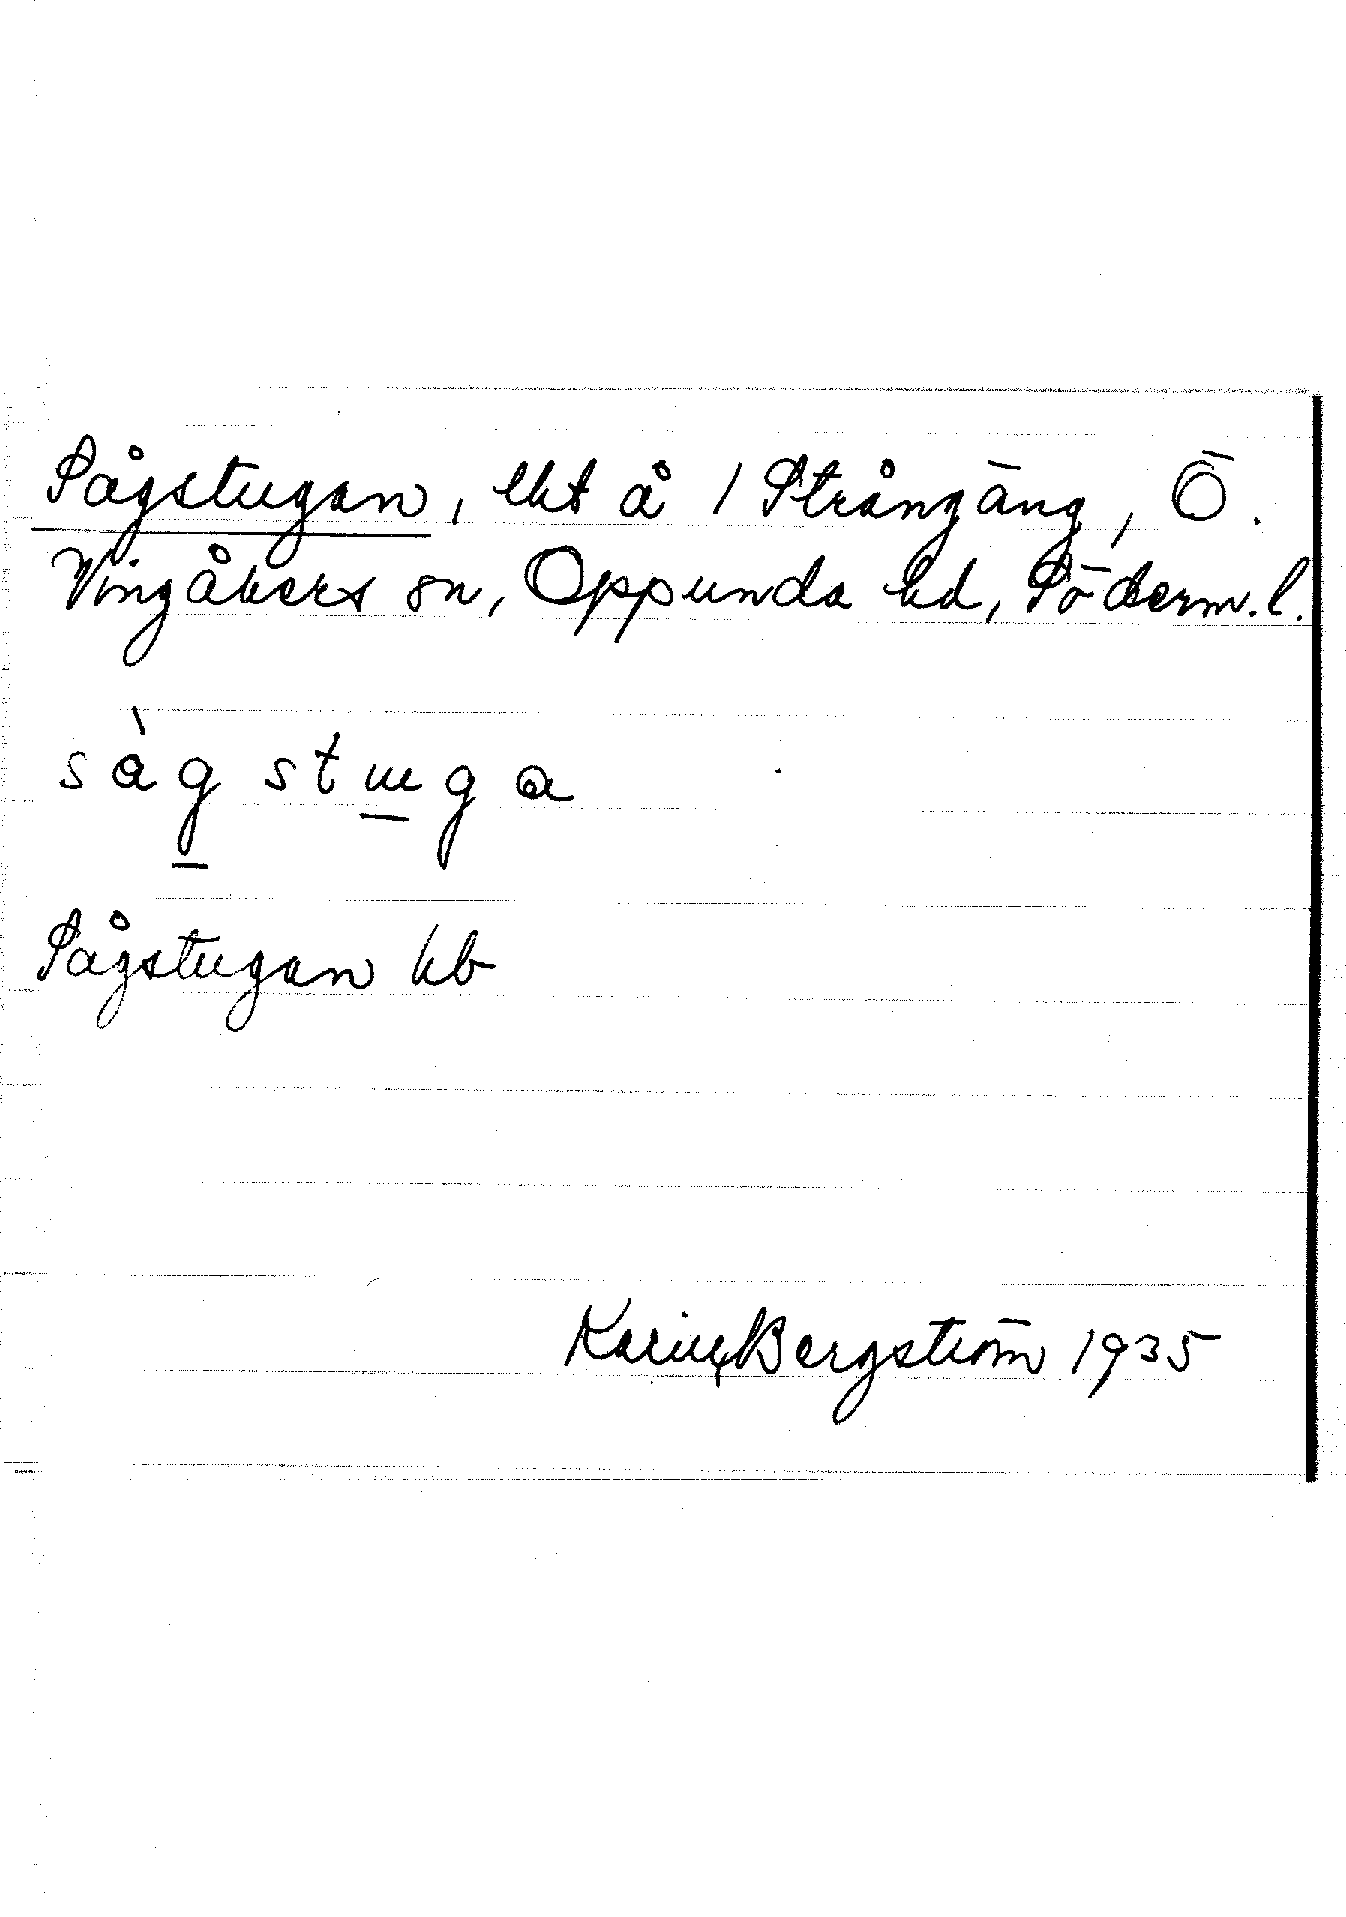 Sågstugan, lht å 1 Strångäng, Ö.
Vingåkers sn, Oppunda hd, Söderm. l.
såg stuga
Sågstugan kb
Karin Bergström 1935